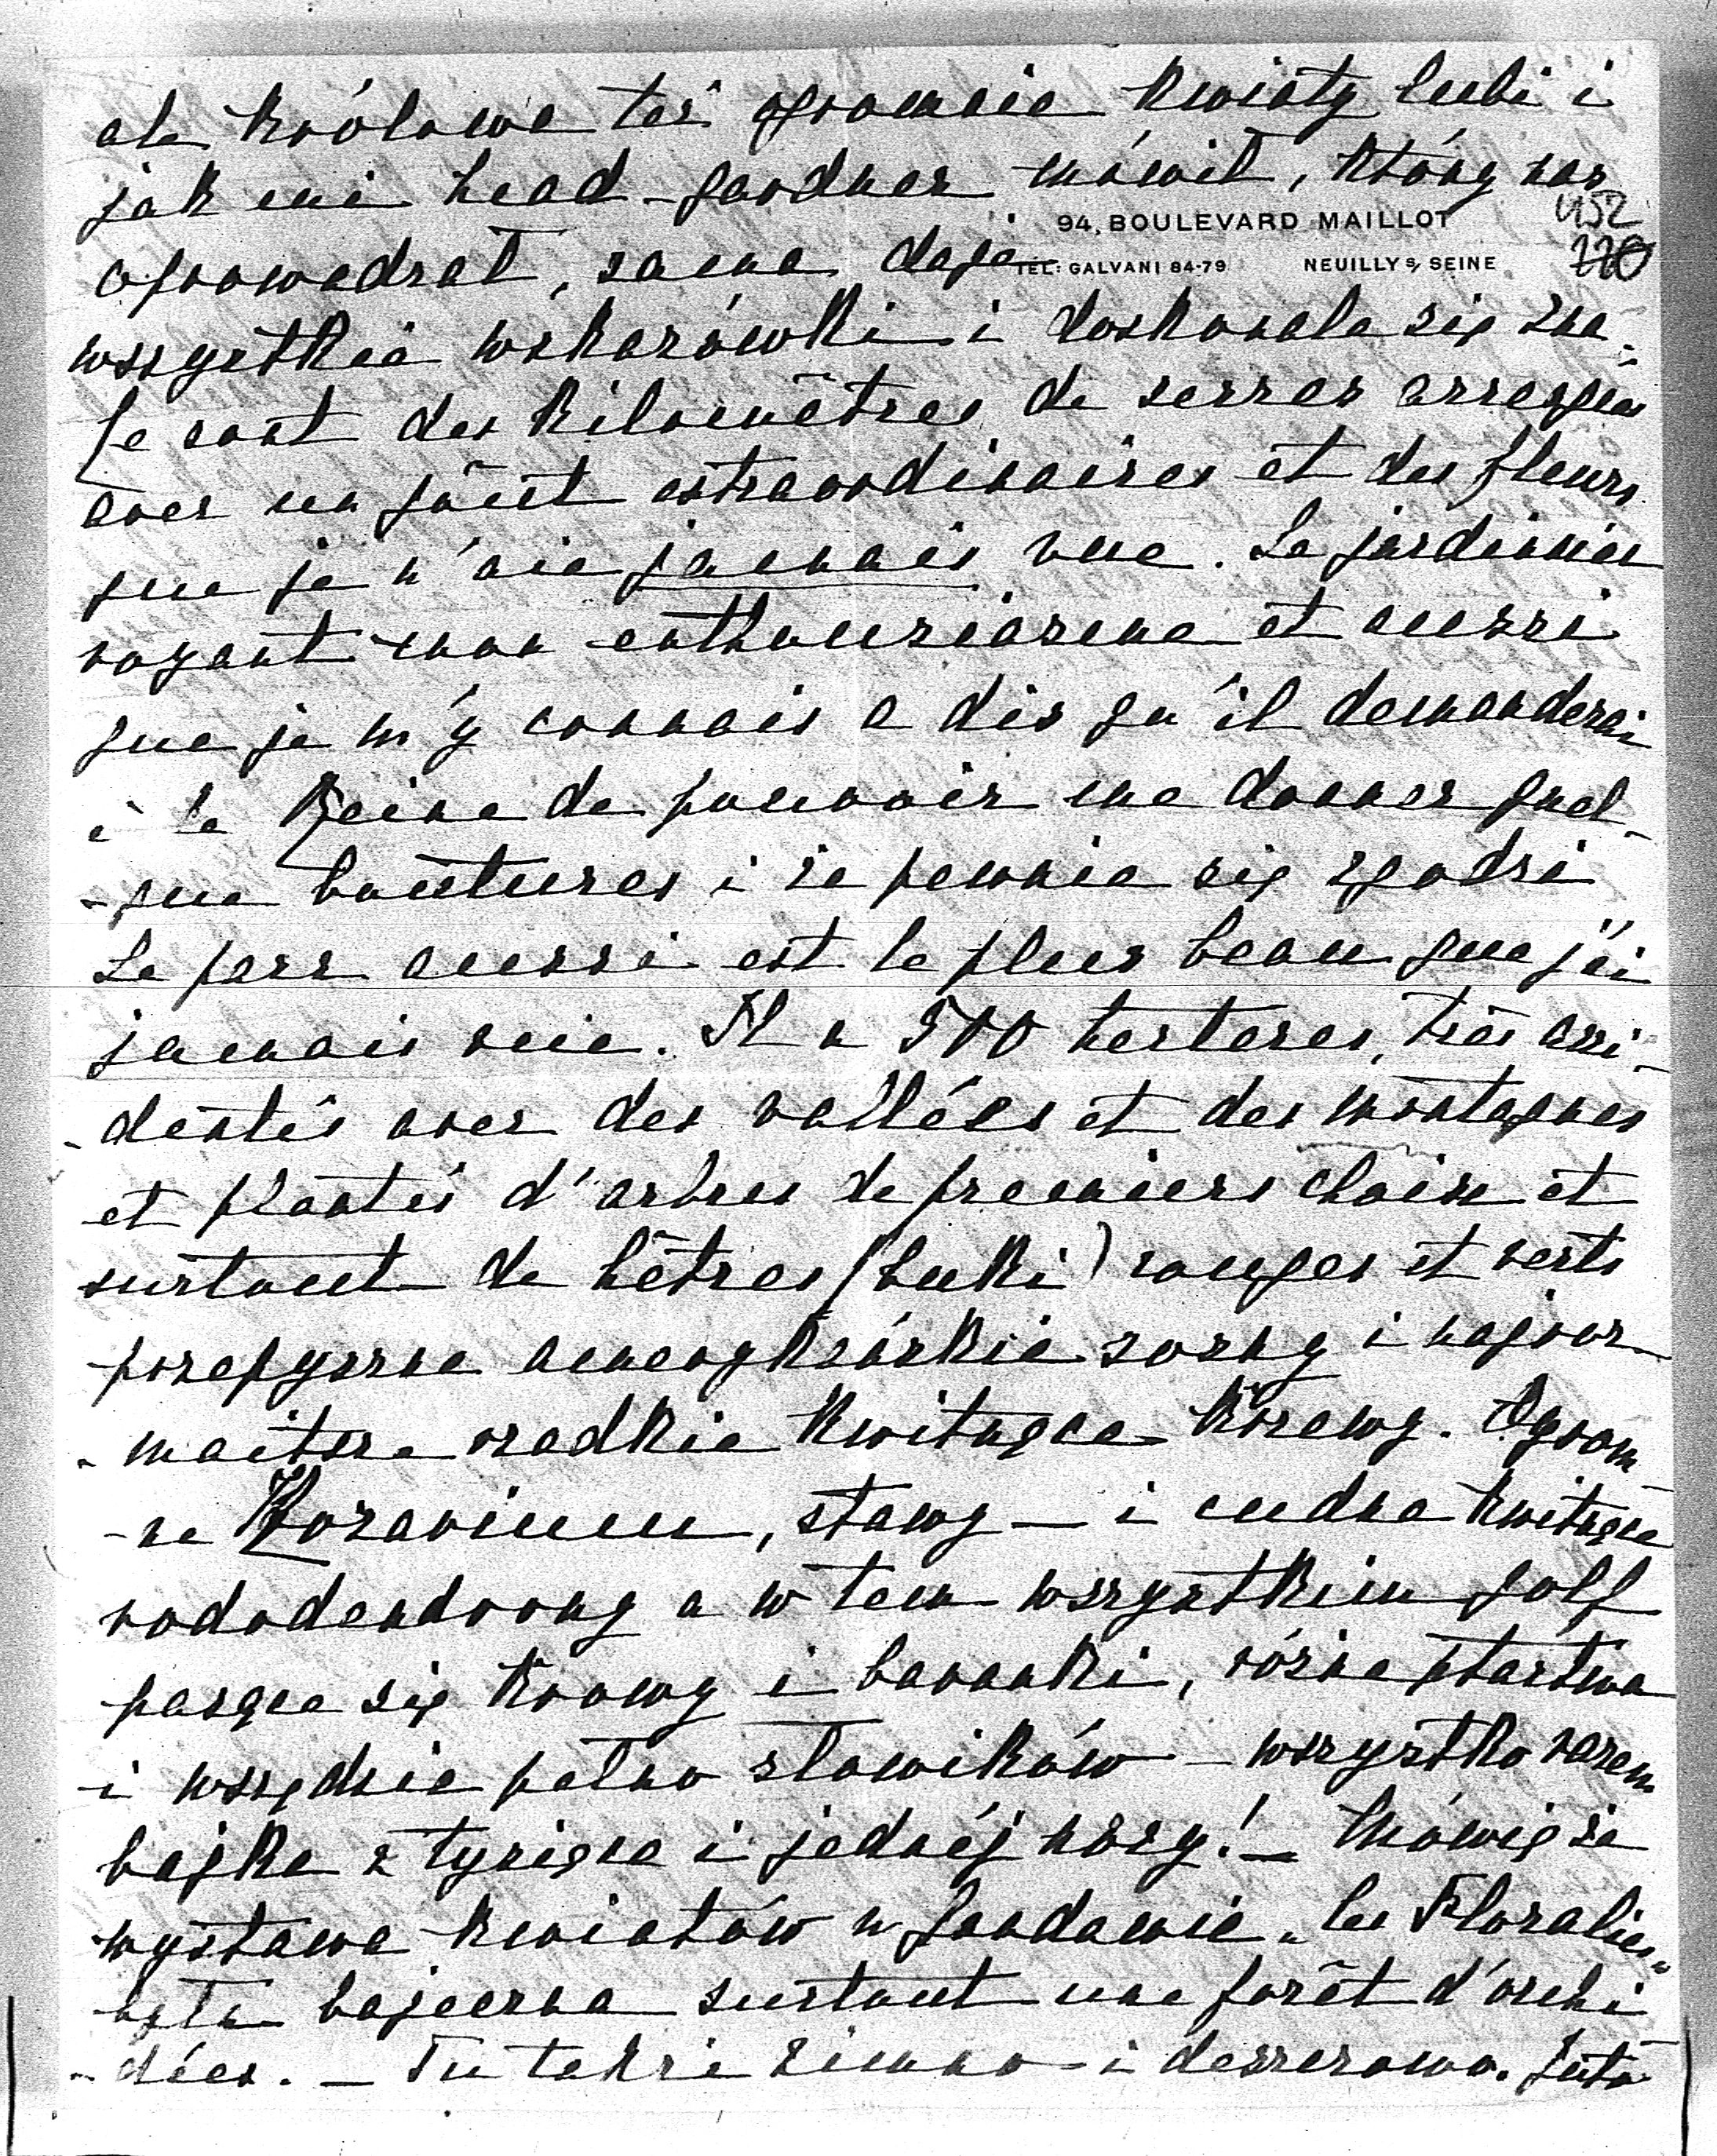 ale królowa też ogromnie kwiaty lubi i
jak mi head-gardner mówił, który nas
94, BOULEVARD MAILLOT
452
oprowadzał, sama daje
TEL: GALVANI 84-79 NEUILLY S/ SEINE
220
wszystkie wskazówki i doskonale się zna.
Ce sont des kilomètres de serres arrangées
avec un goût extraordinaires et des fleurs
que je n'aie jamais vue. Le jardinier
voyant mon enthousiasme et aussi
que je m'y connais a dis qu'il demanderai
à la Reine de pouvoir me donner quel-
-que boutures i że pewnie się zgodzi
Le parc aussi est le plus beau que j'ai
jamais vue. Il a 500 hectares, très acci-
-dentés avec des vallées et des montagnes
et plantés d'arbres de premiers choix et
surtout de hêtres (buki) rouges et verts
przepyszne amerykańskie sosny i najroz-
-maitsze rzadkie kwitnące krzewy. Ogrom-
-ne Rozarium, stawy — i cudne kwitnące
rododendrony a w tem wszystkim golf
pasące się krowy i baranki, różne ptactwa
i wszędzie pełno słowików – wszystko razem
bajka z tysiąca i jednéj nocy! — Mówię że
wystawa kwiatów w Gandawie „les Floralies"
była bajeczna surtout une forêt d'orchi-
-dées. — Tu także zimno i deszczowo. Jutro